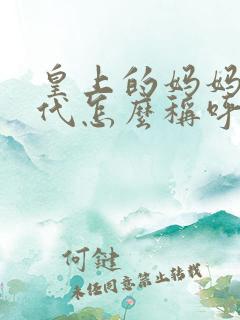 皇上的妈妈
代怎麼稱呼
何健
未经同意禁止转载